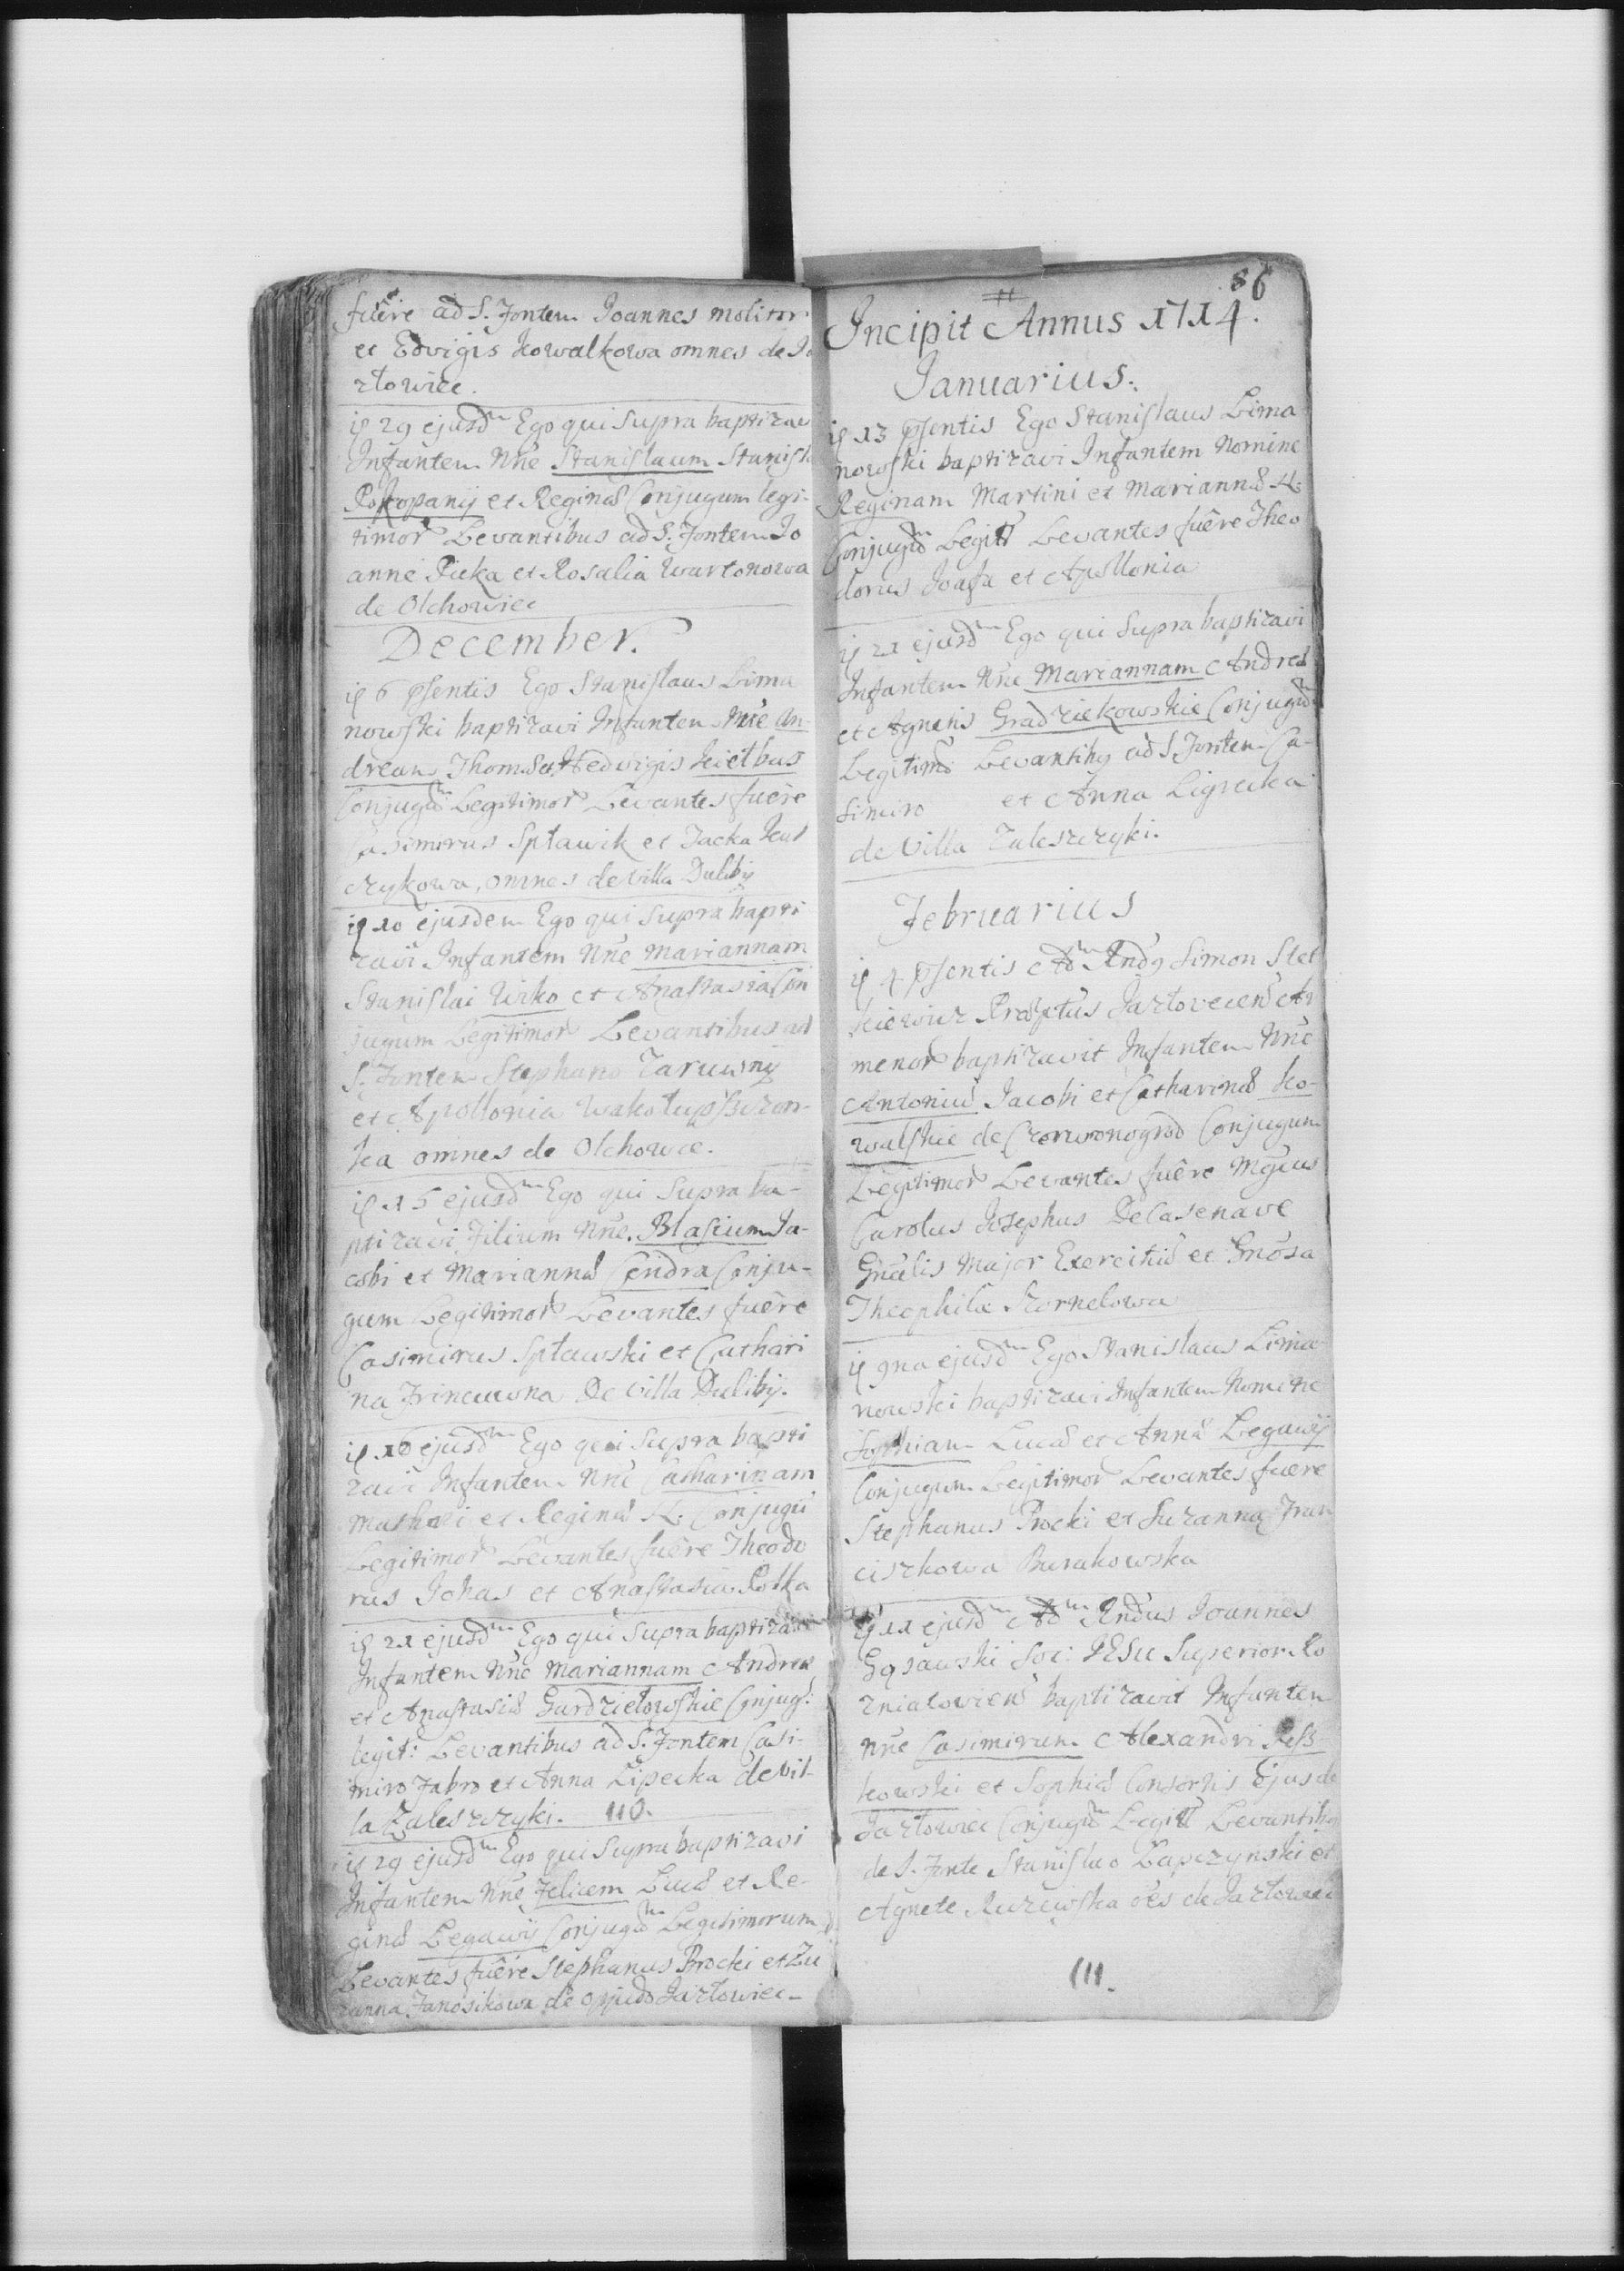 fuêre ad S. Fontem Joannes molitor
et Edvigis Kowalkowa omnes de Ja
złowiec.
29 ejusdm Ego qui supra baptizavi
Infantem Nñe Stanislaum Stanisl
Rozkopanij et Regina Conjugum legi-
timor Levantibus ad S. Fontem Jo
anne Picka et Rosalia Wartonowa
de Olchowiec
December.
6 psentis Ego Stanislaus Lima
nowski baptizavi Infantem Nñe An-
dream Thomæ et Hedvigis Kiełbus
Conjugum Legitimor Levantes fuêre
Casimirus Spławik et Jacka Kul
czykowa, omnes de Villa Duliby
10 ejusdem Ego qui supra bapti
zavi Infantem Nñe Mariannam
Stanislai Uirko et Anastasia Con
jugum Legitimor Levantibus ad
S. Fontem Stephano Zaruwny
et Apollonia
ka omnes de Olchowce.
15 ejusdm Ego qui supra ba-
ptizavi Filium Nñe. Blasium Ja-
cobi et Mariannæ Cendra Conju-
gum Legitimor Levantes fuêre
Casimirus Spławski et Cathari
na Frincuwna De Villa Duliby.
16 ejusdm Ego qui supra bapti
zavi Infantem Nñe Catharinam
Mathæi et Reginæ N. Conjugū
Legitimor Levantes fuêre Theodo
rus Johas et Anastasia Rotka
21 ejusdm Ego qui supra baptizavi
Infantem Nñe Mariannam Andreæ
et Anastasiæ Gardziełowskie Conjug:
legit: Levantibus ad S. Fontem Casi-
miro Fabro et Anna Lipecka de Vil-
la Zaleszczyki. 110.
29 ejusdm Ego qui supra baptizavi
Infantem Nñe Felicem Lucæ et Re-
ginæ Legawij Conjugum Legitimorum
Levantes fuêre Stephanus Brocki et Zu
zanna Janosikowa de oppido Jazłowiec-
86
Incipit Annus 1714.
Januarius.
13 psentis Ego Stanislaus Lima
nowski baptizavi Infantem Nomine
Reginam Martini et Mariannæ N.
Conjugum Legitt Levantes fuêre Theo
dorus et Apollonia
21 ejusdm Ego qui supra baptizavi
Infantem Nñe Mariannam Andreæ
et Agnetis Gradziekowskie Conjugum
Legitimo Levantibus ad S. Fontem Ca-
simiro et Anna Lipecka
de Villa Zaleszczyki.
Februarius
4 psentis Adm Rnds Simon Stef
kiewicz Præptus Jazłovecens Ar
menor baptizavit Infantem Nñe
Antoniū Jacobi et Catharinæ Ko-
walskie de Czerwonogrod Conjugum
Legitimor Levantes fuêre Mgcus
Carolus Josephus DeCasenave
Gñalis Major Exercitus et Gnosa
Theophila Kornelowa
9na ejusdm Ego Stanislaus Lima
nowski baptizavi Infantem Nomine
Sophiam Lucæ et Annæ Legawij
Conjugum Legitimor Levantes fuêre
Stephanus Procki et Zuzanna Fran
ciszkowa Burakowska
11 ejusdm Adm Rndus Joannes
Gąsawski Soc: JESU Superior Ko
zniałoviens baptizavit Infantem
Nñe Casimirum Alexandri Resz
kowski et Sophiæ Consortis Ejus de
Jazłowiec Conjugum Legitt Levantibus
de S. Fonte Stanislao Łapczynski et
Agnete Rurewska oes de Jazłowiec
111.